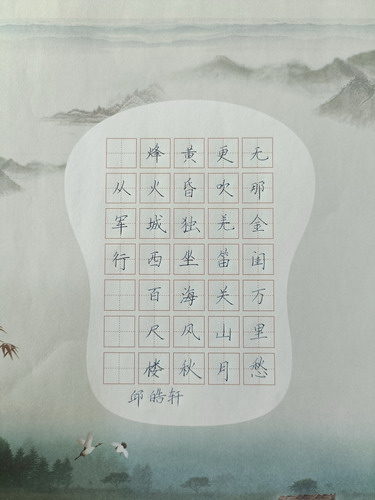 从军行
烽火城西百尺楼
黄昏独坐海风秋
更吹羌笛关山月
无那金闺万里愁
邱皓轩